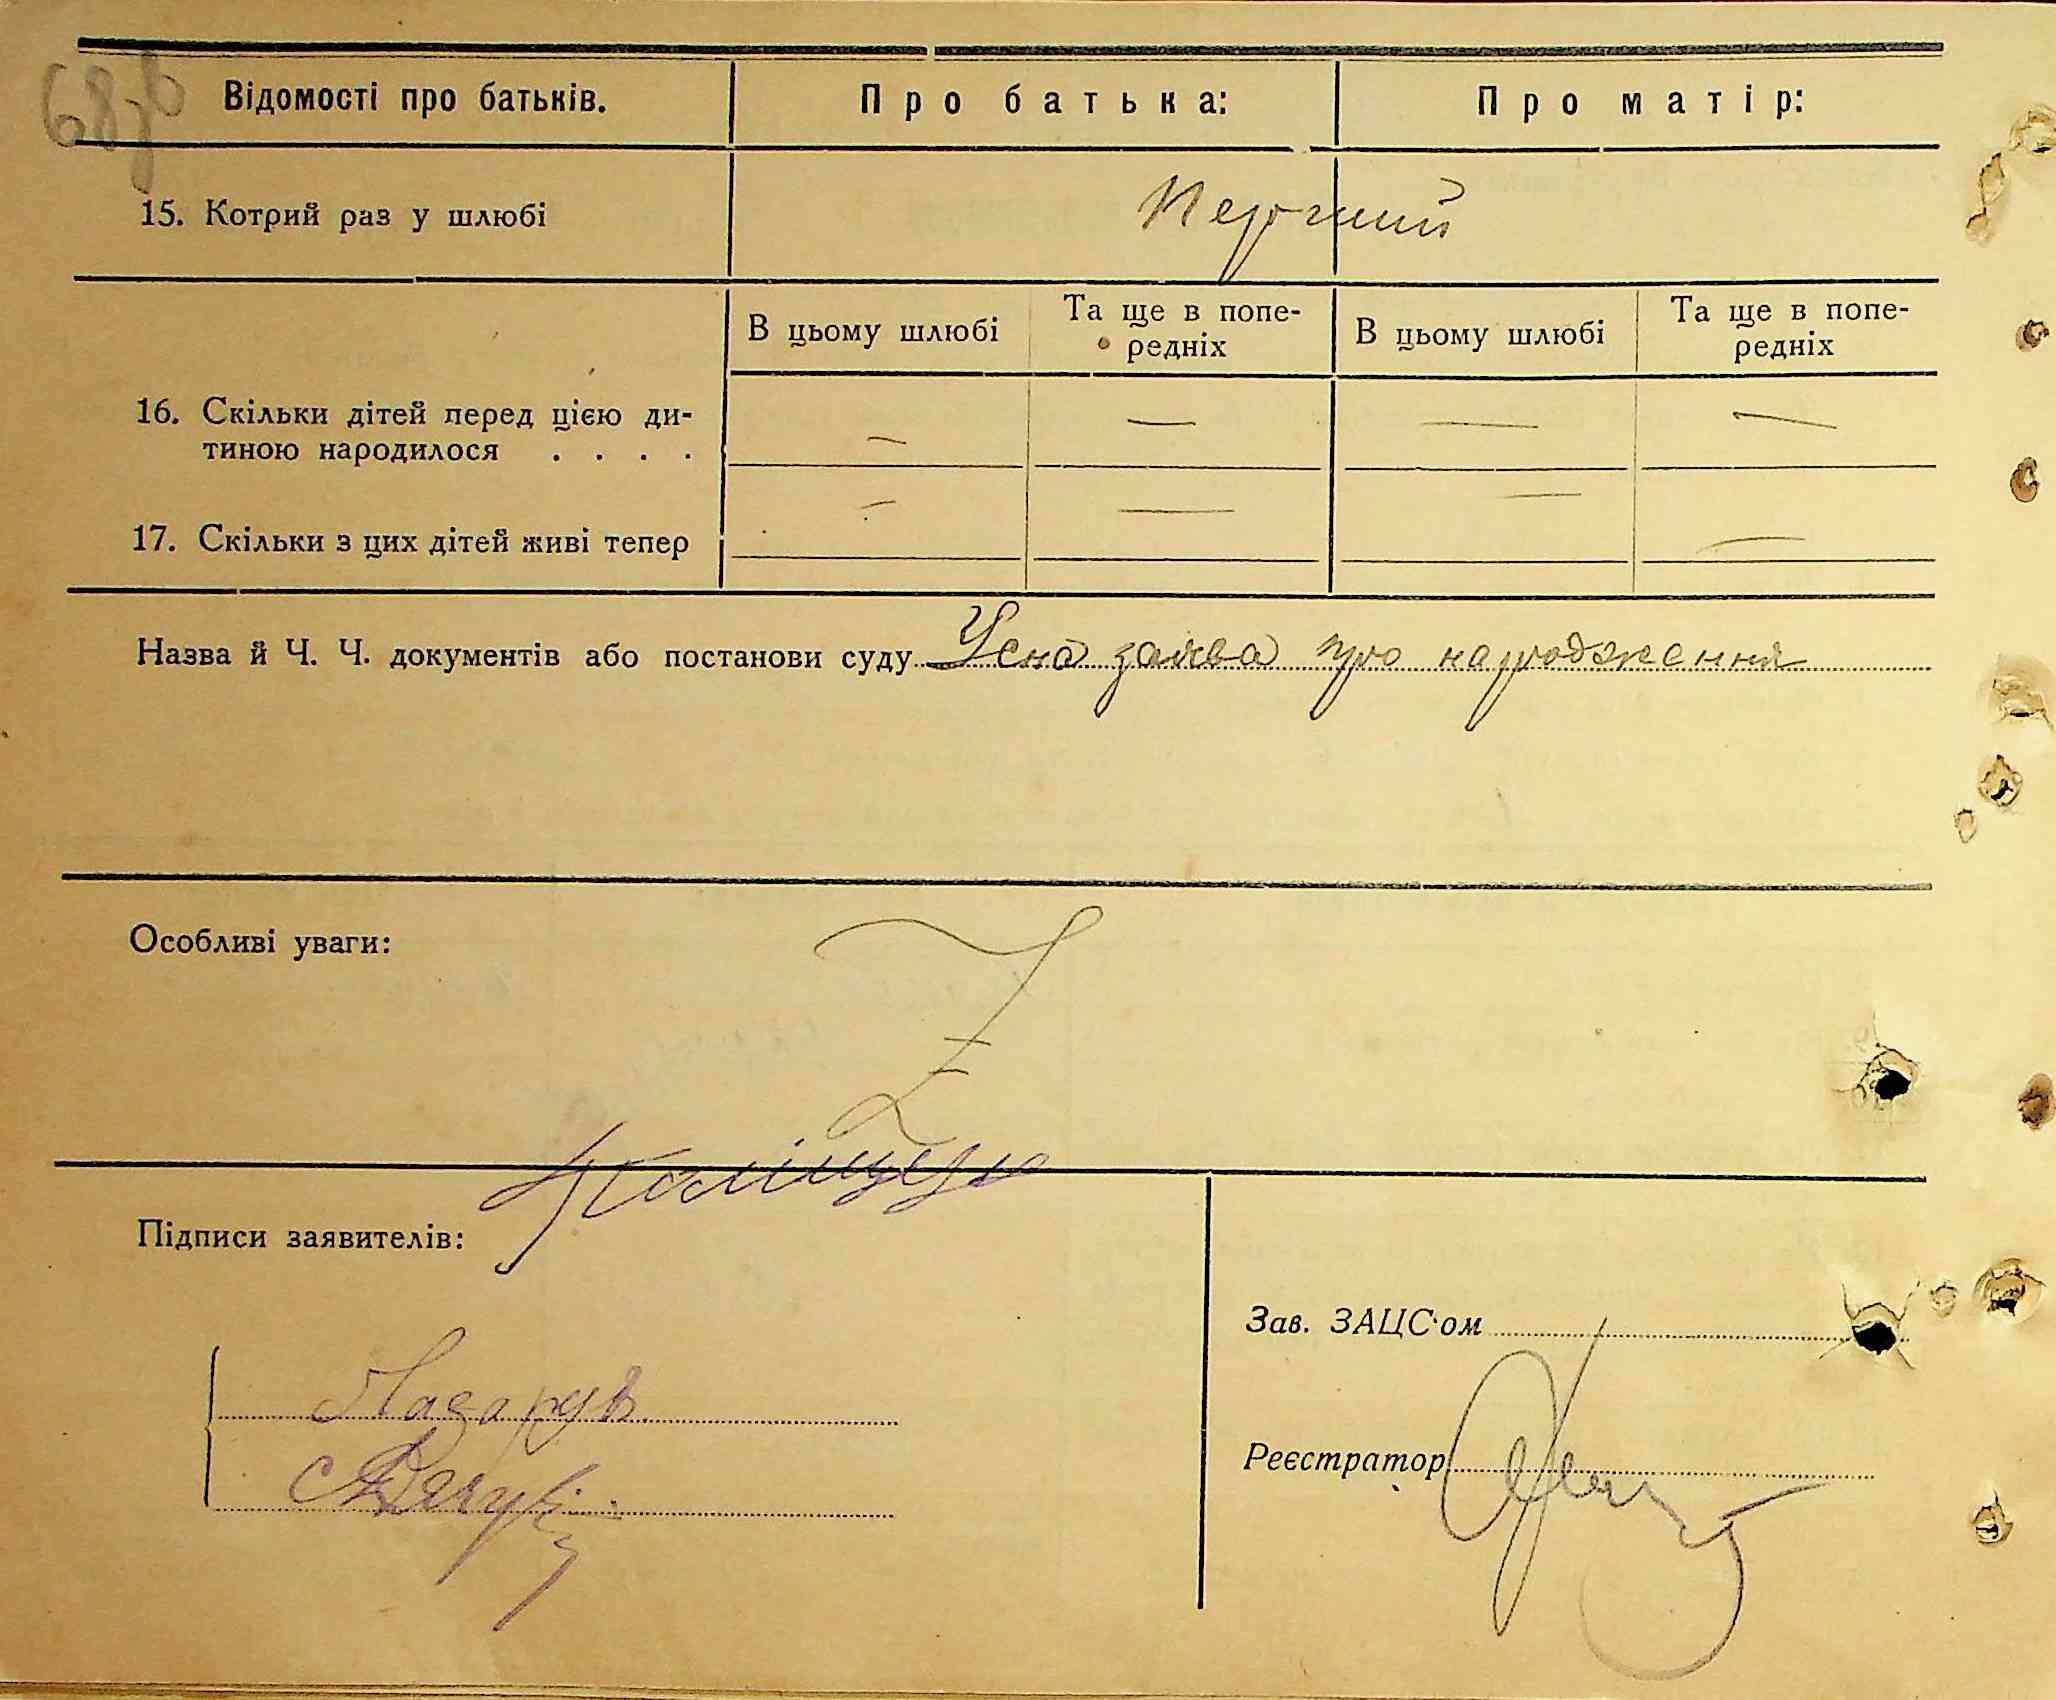 68зв
Відомості про батьків. Про батька: Про матір:
15. Котрий раз у шлюбі Перший
В цьому шлюбі Та ще в попе- В цьому шлюбі Та ще в попе-
редніх редніх
16. Скільки дітей перед цією ди- — — — —
тиною народилося . . . .
17. Скільки з цих дітей живі тепер — — — —
Назва й Ч. Ч. документів або постанови суду Усна заява про народження
Особливі уваги:
Підписи заявителів:
Зав. ЗАЦС'ом
Реєстратор